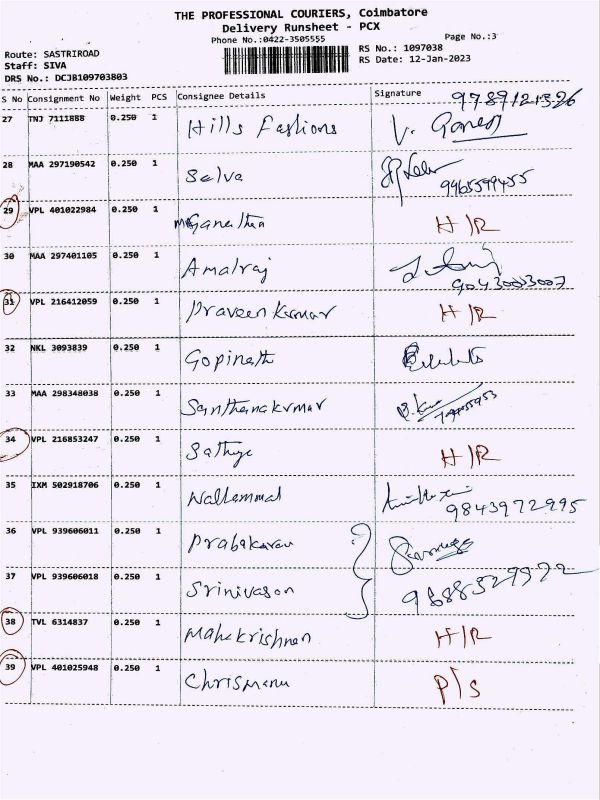 THE PROFESSIONAL COURIERS, Coimbatore
Delivery Runsheet - PCX
Phone No.:0422-3505555
Page No.:3
Route: SASTRIROAD
RS No.: 1097038
Staff: SIVA
RS Date: 12-Jan-2023
DRS No.: DCJB109703803
S No Consignment No Weight PCS Consignee Details Signature
9789121326
27 TNJ 7111888 0.250 1 Hills Fashions
28 MAA 297190542 0.250 1 Selva
9965599455
29 VPL 401022984 0.250 1 H/R
30 MAA 297401105 0.250 1 Amalraj
9043003007
31 VPL 216412059 0.250 1 Praveen Kumar H/R
32 NKL 3093839 0.250 1 Gopinath
33 MAA 298348038 0.250 1 Santhanakumar
34 VPL 216853247 0.250 1 Sathya H/R
35 IXM 502918706 0.250 1 Nallammal
9843972995
36 VPL 939606011 0.250 1 Prabakaran
37 VPL 939606018 0.250 1 Srinivasan
9688329972
38 TVL 6314837 0.250 1 Mahakrishnan H/R
39 VPL 401025948 0.250 1 P/S